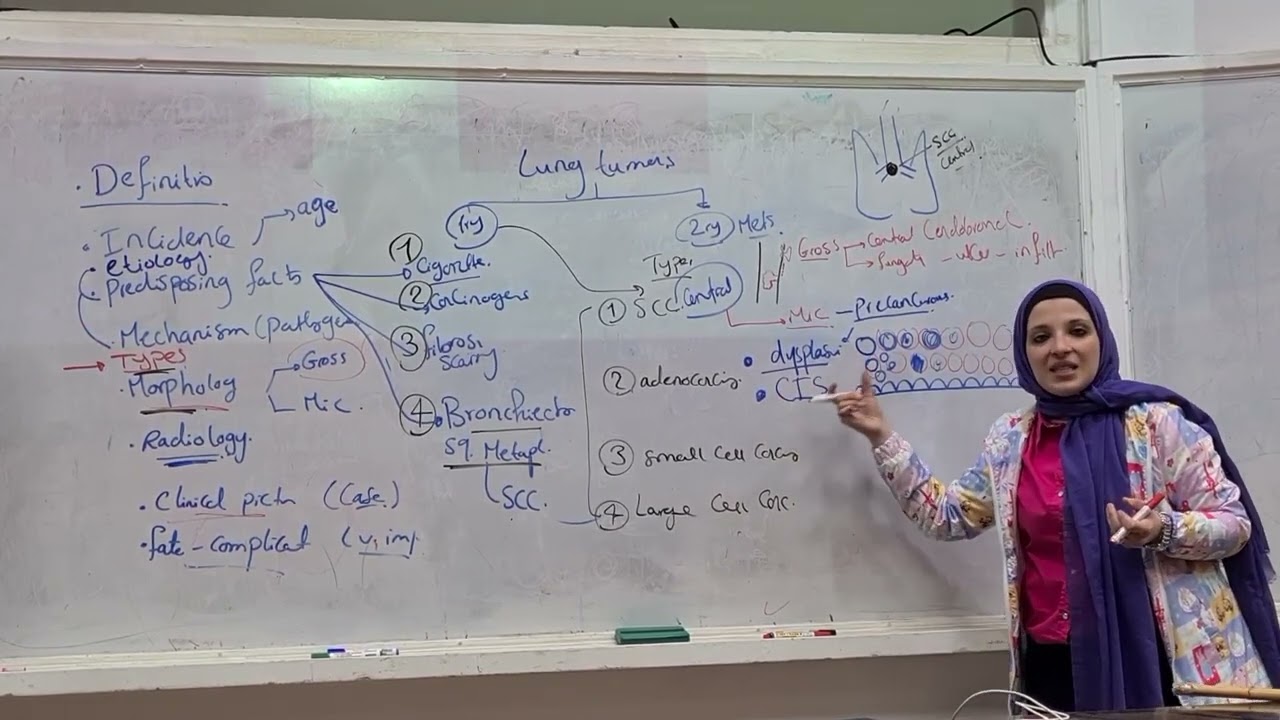 Lung tumors
. Definitio
. Incidence
age
. etiology.
. Predisposing facts
Mechanism (Pathogen
Types
. Morphology
Gross
Mic.
. Radiology.
. Clinical pictu (Case)
. fate - complicat (v, imp
1ry
1
Cigarette.
2
Carcinogens
3
fibrosi
scarry
4
Bronchiecta
Sq. Metapl.
SCC.
2ry Mets.
Types
1 SCC. Central
2 adenocarci.
3 Small Cell Carci
4 Large Cell Carc.
SCC
Central
Gross
Central
- ulcer - infilt.
Mic - Precancerous.
. dysplasi
. CIS